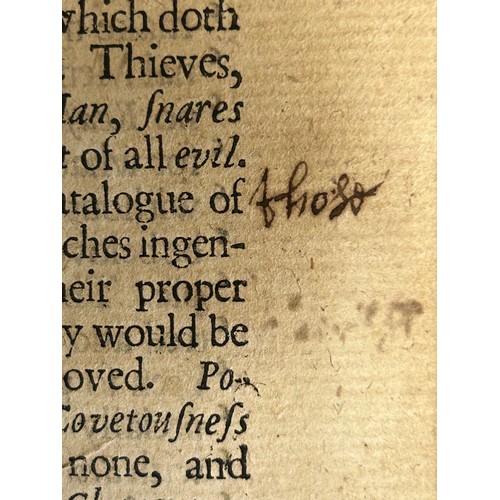 which doth
Thieves,
Man, ſnares
of all evil.
catalogue of those
ches ingen-
heir proper
y would be
oved. Po-
Covetouſneſs
none, and